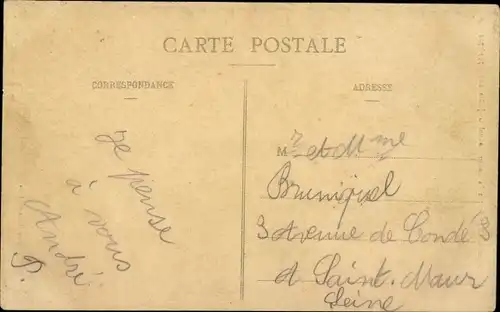 CARTE POSTALE
CORRESPONDANCE
ADRESSE
Je pense
à vous
André
P.
Mr et Mme
Bruniquel
3 Avenue de Condé 3
A Saint. Maur
Seine